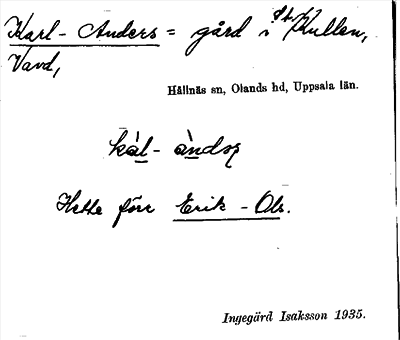 Karl-Anders = gård i Kullen,
Vavd,
Hållnäs sn, Olands hd, Uppsala län.
kàl-àndsz
Hette förr Erik-Ols.
Ingegärd Isaksson 1935.